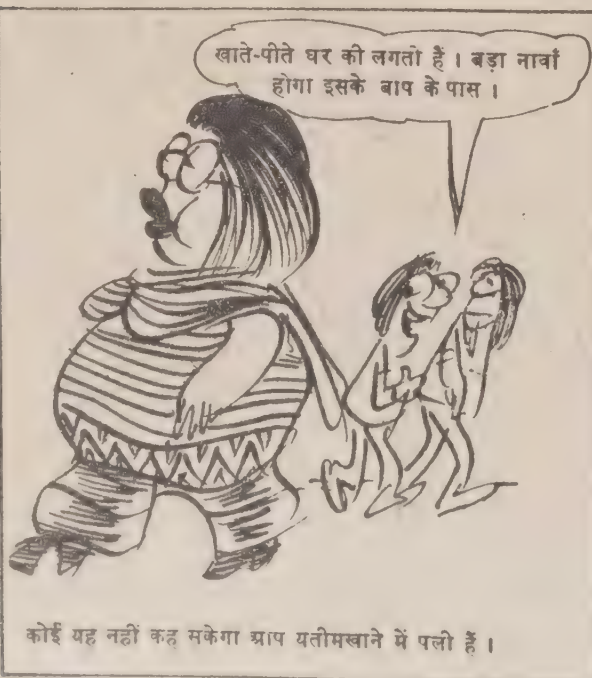 खाते-पीते घर की लगती हैं । बड़ा नावाँ
होगा इसके बाप के पास ।
कोई यह नहीं कह सकेगा आप यतीमखाने में पली हैं ।